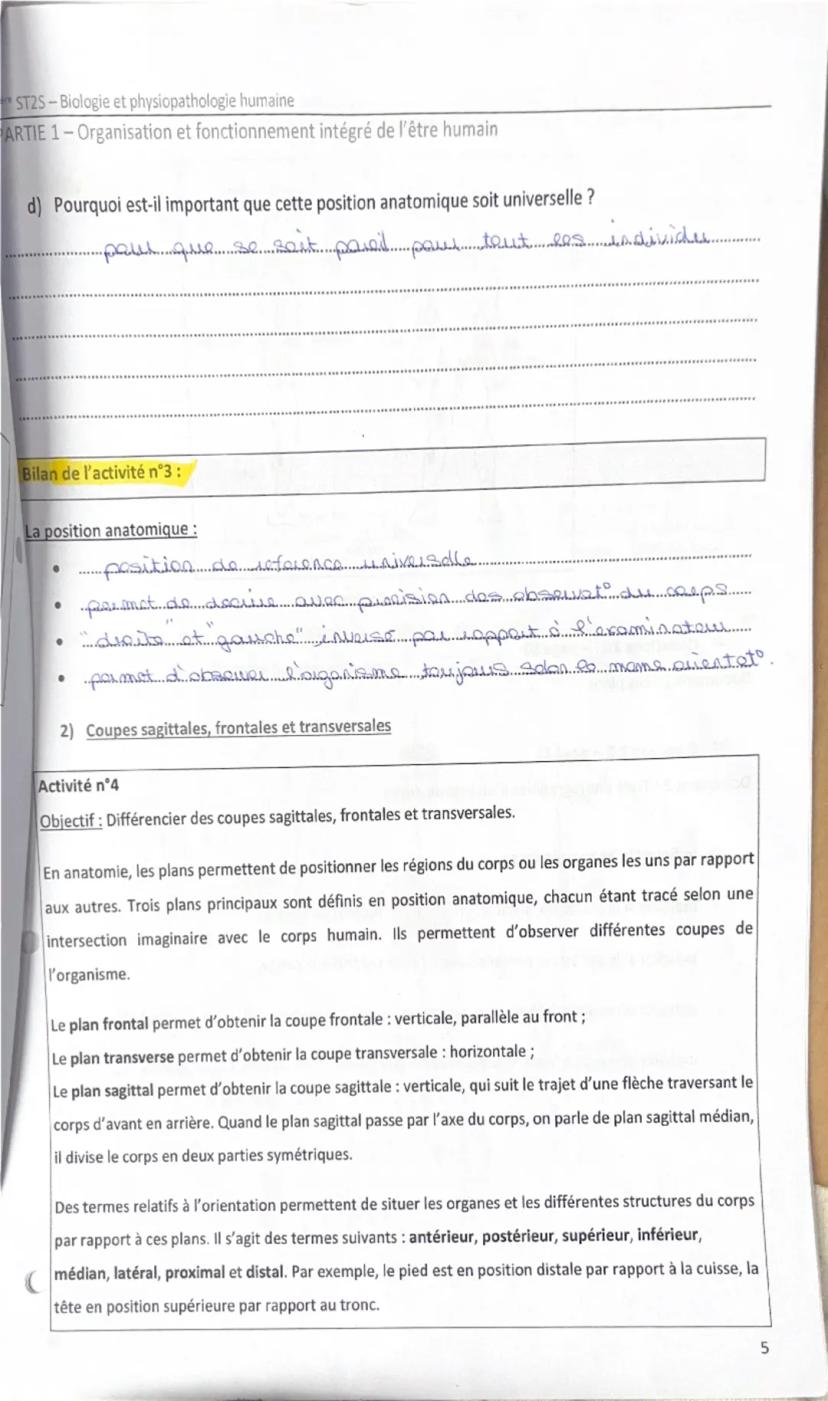 ère ST2S – Biologie et physiopathologie humaine
PARTIE 1 – Organisation et fonctionnement intégré de l'être humain
d) Pourquoi est-il important que cette position anatomique soit universelle ?
pour que se soit pareil pour tout les individu
Bilan de l'activité n°3 :
La position anatomique :
• position de reference universelle
• permet de decrire avec precision des observat° du corps
• "droite" et "gauche" inversé par rapport à l'examinateur
• permet d'observer l'organisme toujours selon la meme orientat°.
2) Coupes sagittales, frontales et transversales
Activité n°4
Objectif : Différencier des coupes sagittales, frontales et transversales.
En anatomie, les plans permettent de positionner les régions du corps ou les organes les uns par rapport
aux autres. Trois plans principaux sont définis en position anatomique, chacun étant tracé selon une
intersection imaginaire avec le corps humain. Ils permettent d'observer différentes coupes de
l'organisme.
Le plan frontal permet d'obtenir la coupe frontale : verticale, parallèle au front ;
Le plan transverse permet d'obtenir la coupe transversale : horizontale ;
Le plan sagittal permet d'obtenir la coupe sagittale : verticale, qui suit le trajet d'une flèche traversant le
corps d'avant en arrière. Quand le plan sagittal passe par l'axe du corps, on parle de plan sagittal médian,
il divise le corps en deux parties symétriques.
Des termes relatifs à l'orientation permettent de situer les organes et les différentes structures du corps
par rapport à ces plans. Il s'agit des termes suivants : antérieur, postérieur, supérieur, inférieur,
médian, latéral, proximal et distal. Par exemple, le pied est en position distale par rapport à la cuisse, la
tête en position supérieure par rapport au tronc.
5